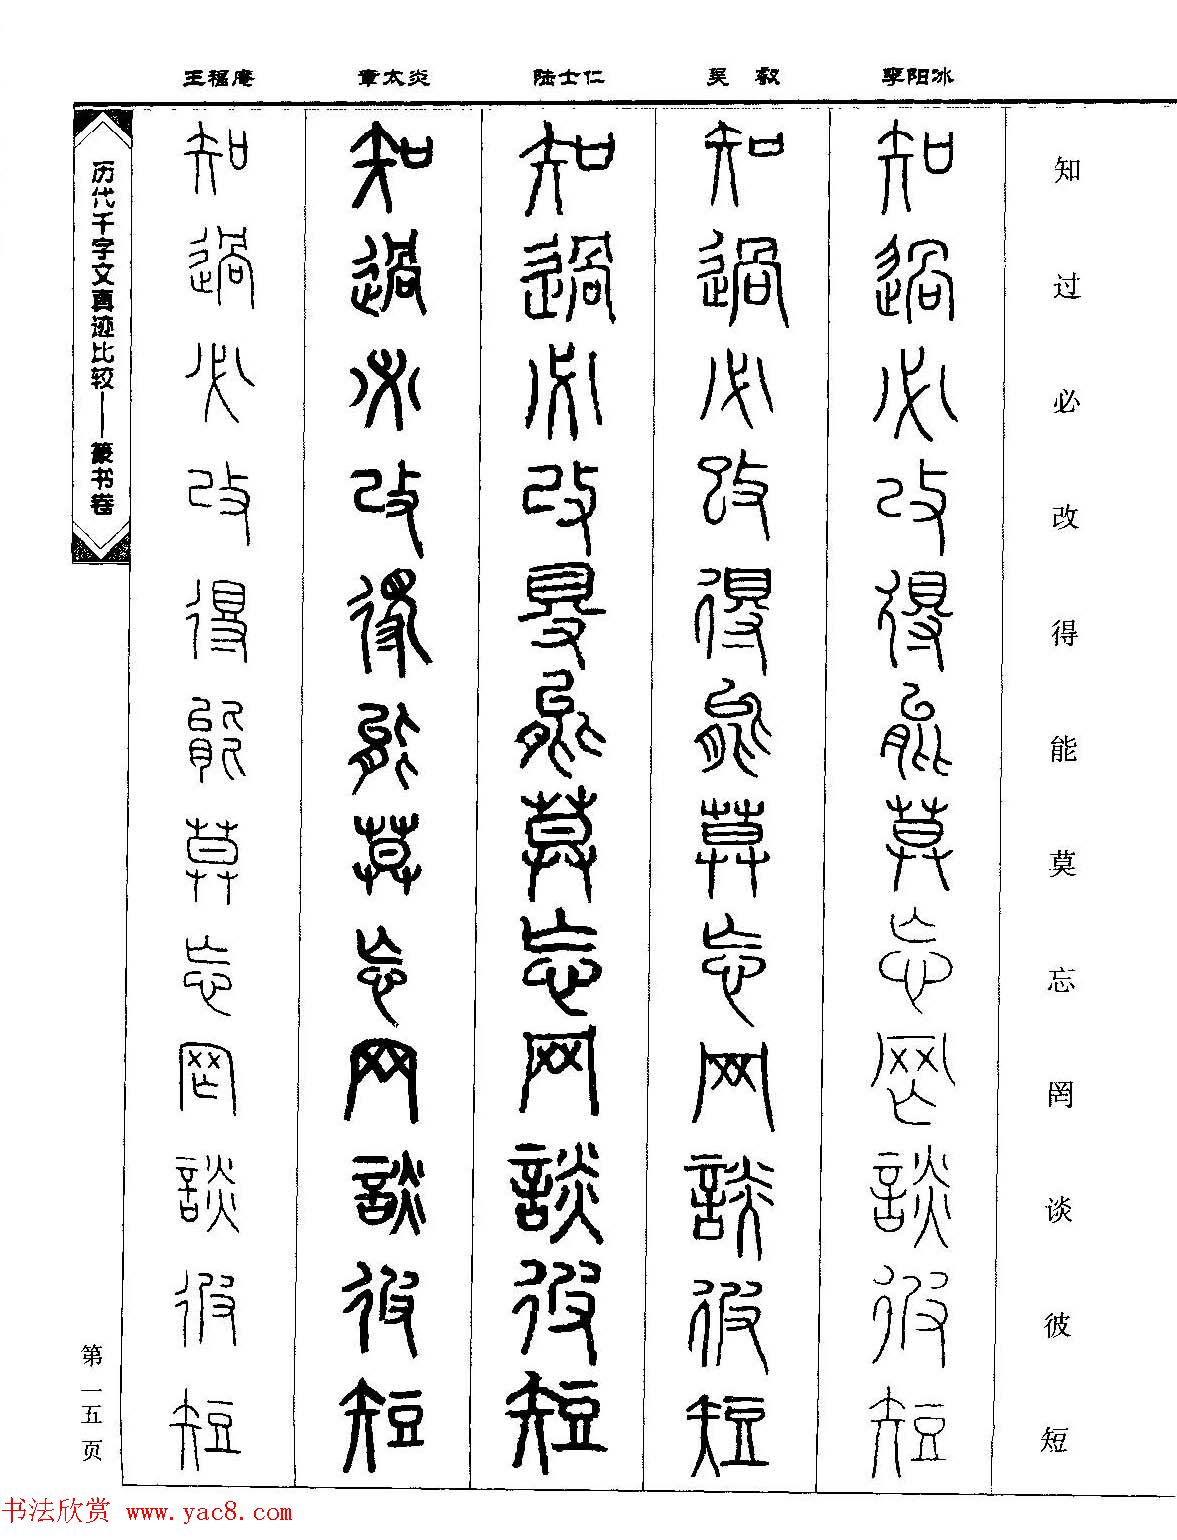 王福庵 章太炎 陆士仁 吴叡 李阳冰
知 知 知 知 知 知
過 過 過 過 過 过
必 必 必 必 必 必
改 改 改 改 改 改
得 得 得 得 得 得
能 能 能 能 能 能
莫 莫 莫 莫 莫 莫
忘 忘 忘 忘 忘 忘
罔 网 网 网 罔 罔
談 談 談 談 談 谈
彼 彼 彼 彼 彼 彼
短 短 短 短 短 短
历代千字文真迹比较——篆书卷
第一五页
书法欣赏 www.yac8.com